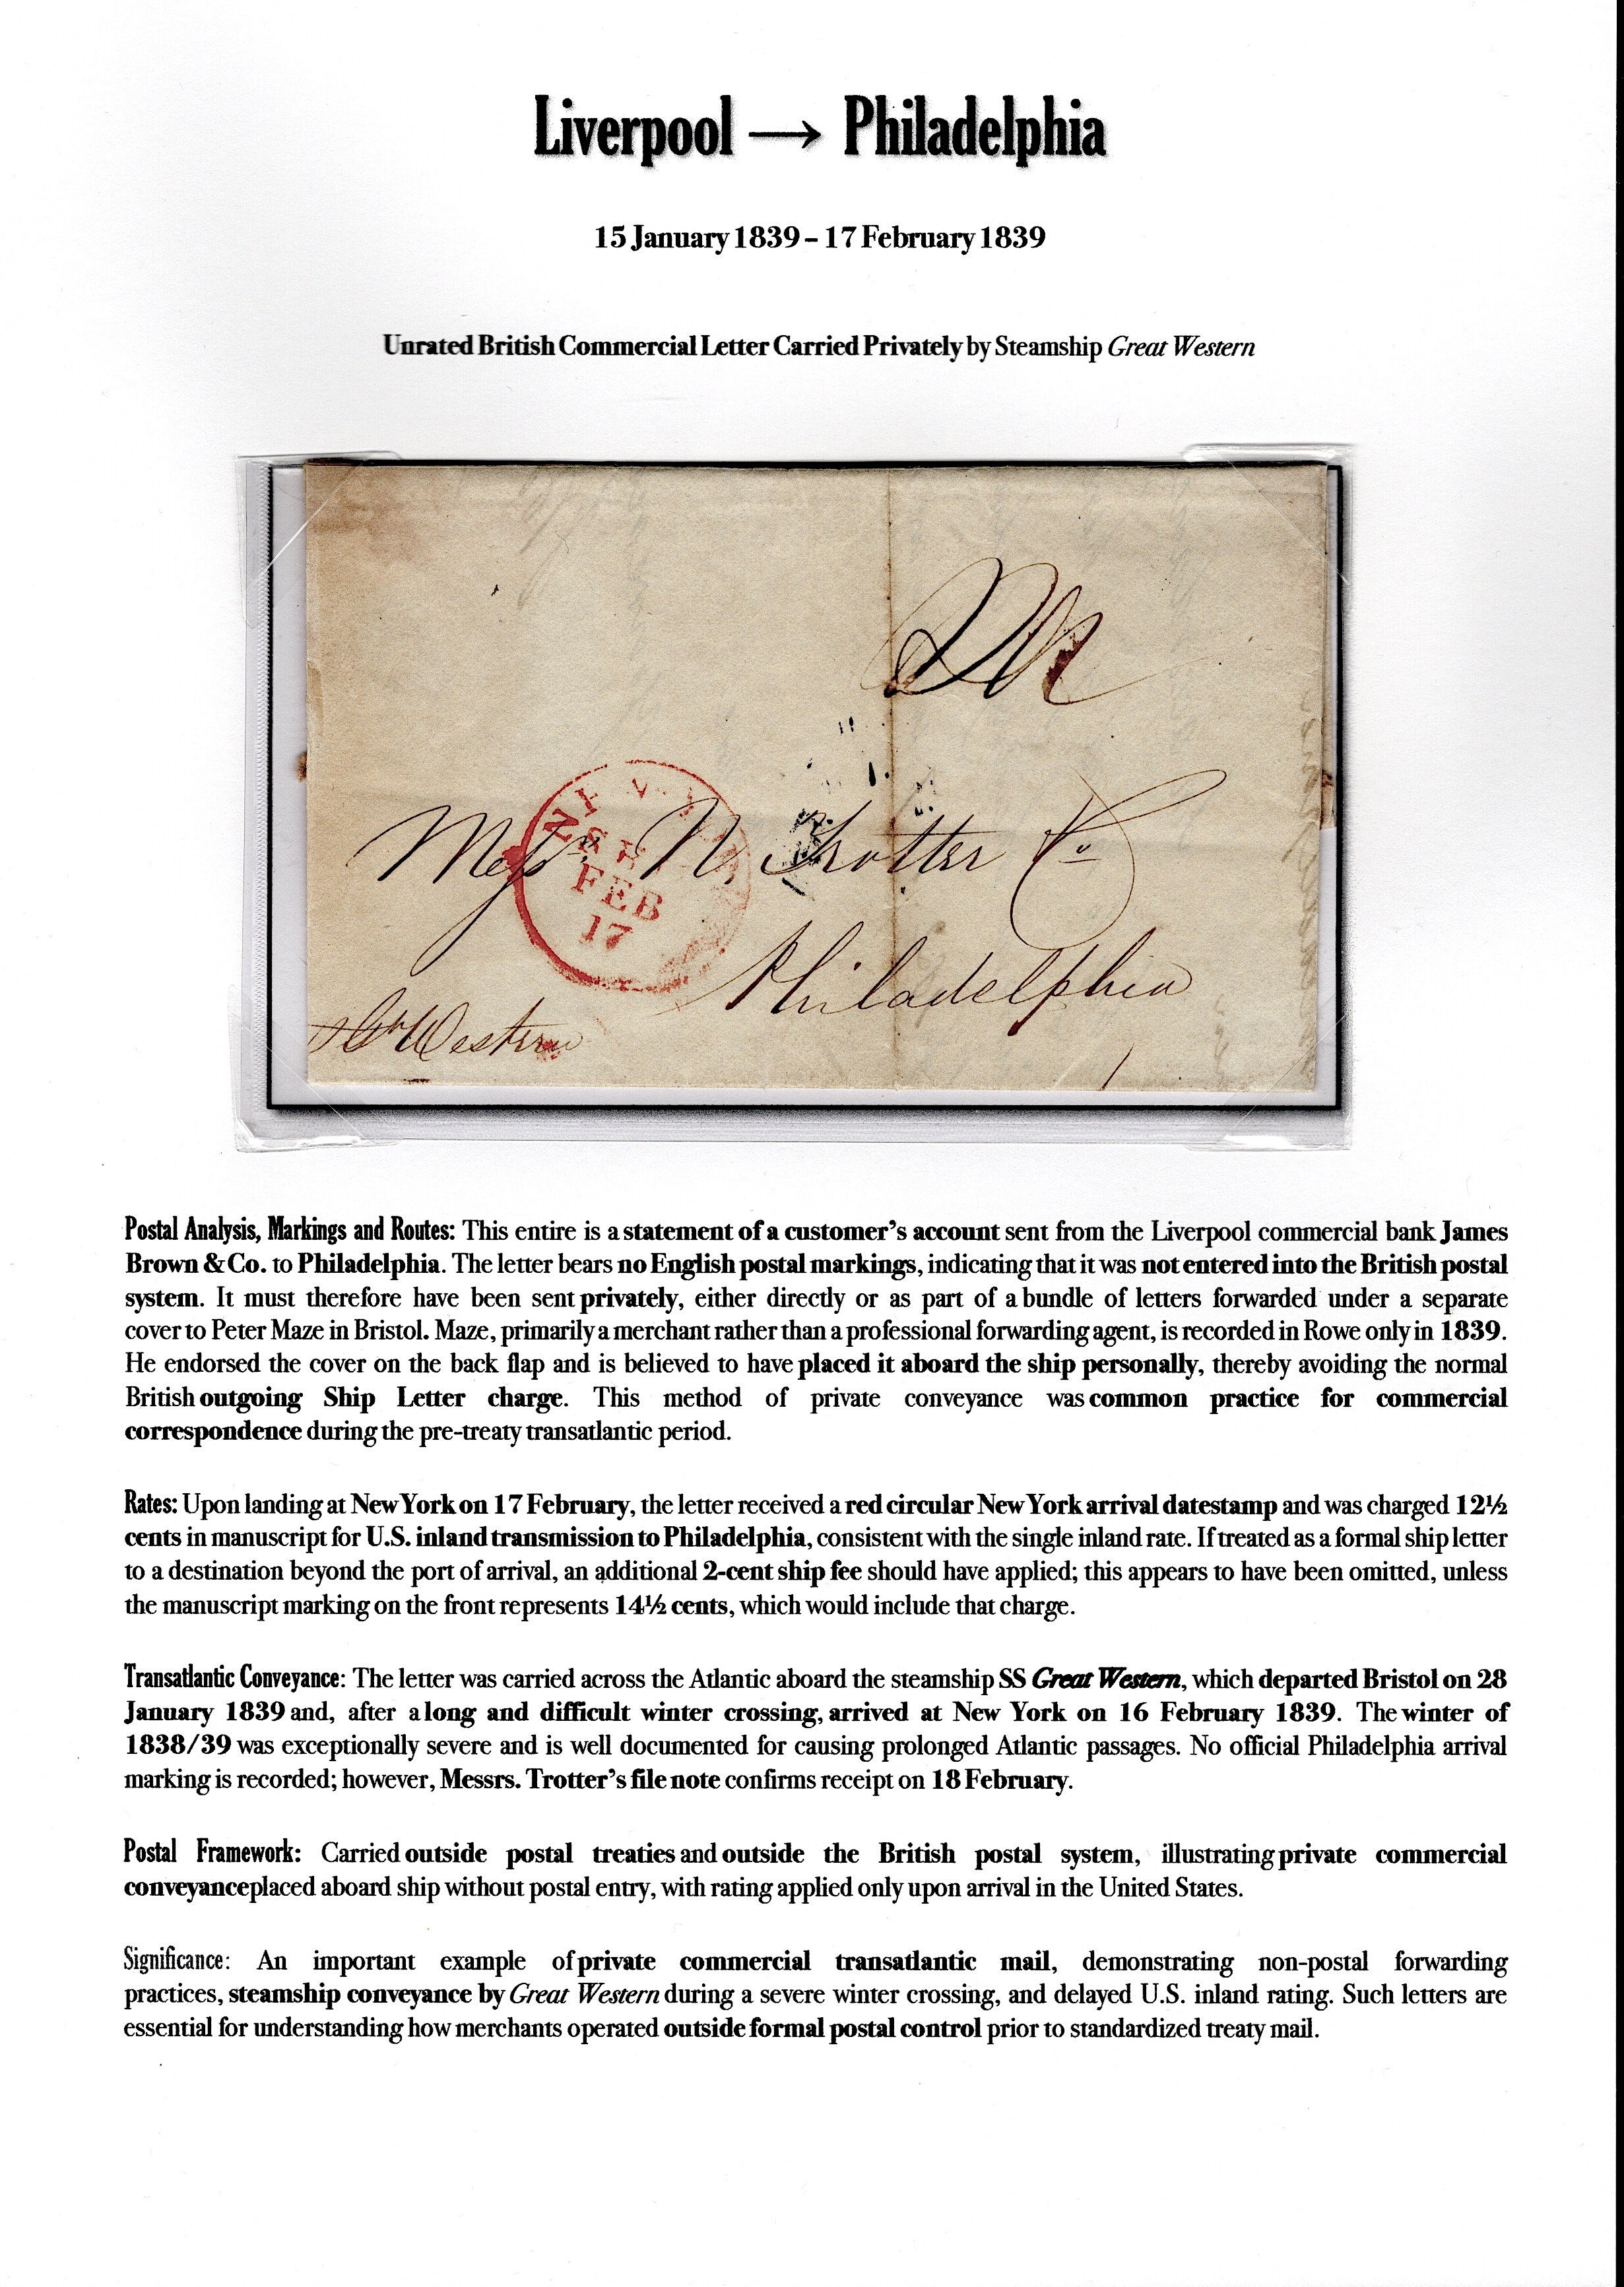 Liverpool → Philadelphia
15 January 1839 – 17 February 1839
Unrated British Commercial Letter Carried Privately by Steamship Great Western
Messrs N. Trotter & Co
SH
FEB
17
Philadelphia
Gt Western
Postal Analysis, Markings and Routes: This entire is a statement of a customer's account sent from the Liverpool commercial bank James
Brown & Co. to Philadelphia. The letter bears no English postal markings, indicating that it was not entered into the British postal
system. It must therefore have been sent privately, either directly or as part of a bundle of letters forwarded under a separate
cover to Peter Maze in Bristol. Maze, primarily a merchant rather than a professional forwarding agent, is recorded in Rowe only in 1839.
He endorsed the cover on the back flap and is believed to have placed it aboard the ship personally, thereby avoiding the normal
British outgoing Ship Letter charge. This method of private conveyance was common practice for commercial
correspondence during the pre-treaty transatlantic period.
Rates: Upon landing at New York on 17 February, the letter received a red circular New York arrival datestamp and was charged 12½
cents in manuscript for U.S. inland transmission to Philadelphia, consistent with the single inland rate. If treated as a formal ship letter
to a destination beyond the port of arrival, an additional 2-cent ship fee should have applied; this appears to have been omitted, unless
the manuscript marking on the front represents 14½ cents, which would include that charge.
Transatlantic Conveyance: The letter was carried across the Atlantic aboard the steamship SS Great Western, which departed Bristol on 28
January 1839 and, after a long and difficult winter crossing, arrived at New York on 16 February 1839. The winter of
1838/39 was exceptionally severe and is well documented for causing prolonged Atlantic passages. No official Philadelphia arrival
marking is recorded; however, Messrs. Trotter's file note confirms receipt on 18 February.
Postal Framework: Carried outside postal treaties and outside the British postal system, illustrating private commercial
conveyanceplaced aboard ship without postal entry, with rating applied only upon arrival in the United States.
Significance: An important example of private commercial transatlantic mail, demonstrating non-postal forwarding
practices, steamship conveyance by Great Western during a severe winter crossing, and delayed U.S. inland rating. Such letters are
essential for understanding how merchants operated outside formal postal control prior to standardized treaty mail.